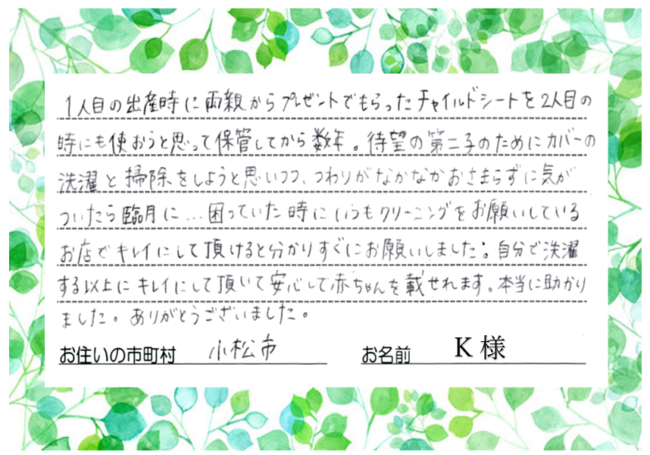 1人目の出産時に両親からプレゼントでもらったチャイルドシートを2人目の
時にも使おうと思って保管してから数年。待望の第二子のためにカバーの
洗濯と掃除をしようと思いつつ、つわりがなかなかおさまらずに気が
ついたら臨月に…困っていた時にいつもクリーニングをお願いしている
お店でキレイにして頂けると分かりすぐにお願いしました。自分で洗濯
する以上にキレイにして頂いて安心して赤ちゃんを載せれます。本当に助かり
ました。ありがとうございました。
お住いの市町村 小松市 お名前 K様